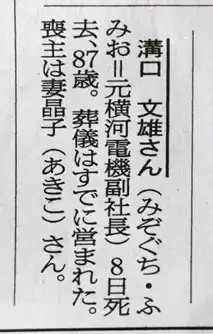 溝口　文雄さん（みぞぐち・ふ
みお＝元横河電機副社長）　8日死
去、87歳。　葬儀はすでに営まれた。
喪主は妻晶子（あきこ）さん。